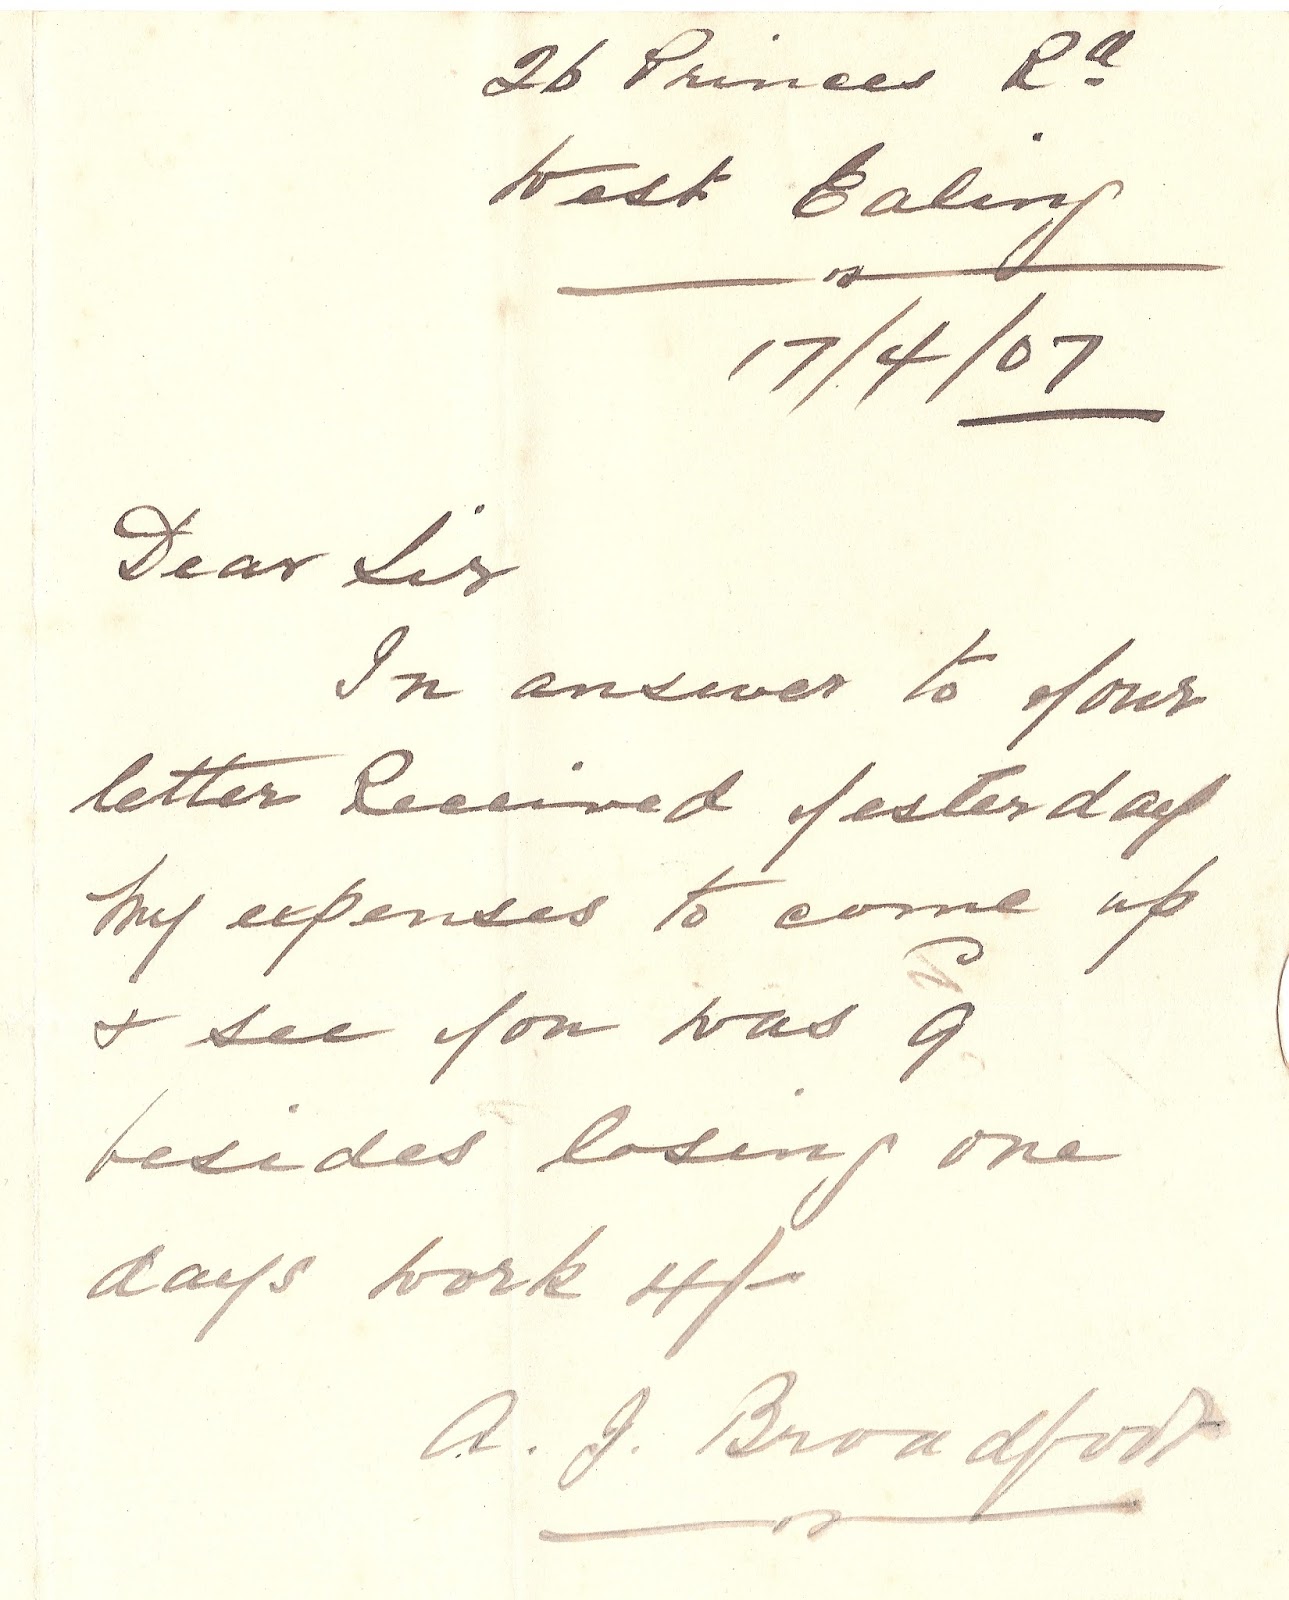 26 Princes Rd
West Ealing
17/4/07
Dear Sir
In answer to your
letter Received yesterday
My expenses to come up
& see you was 9
besides losing one
days work 4/-
A. J. Broadfoot